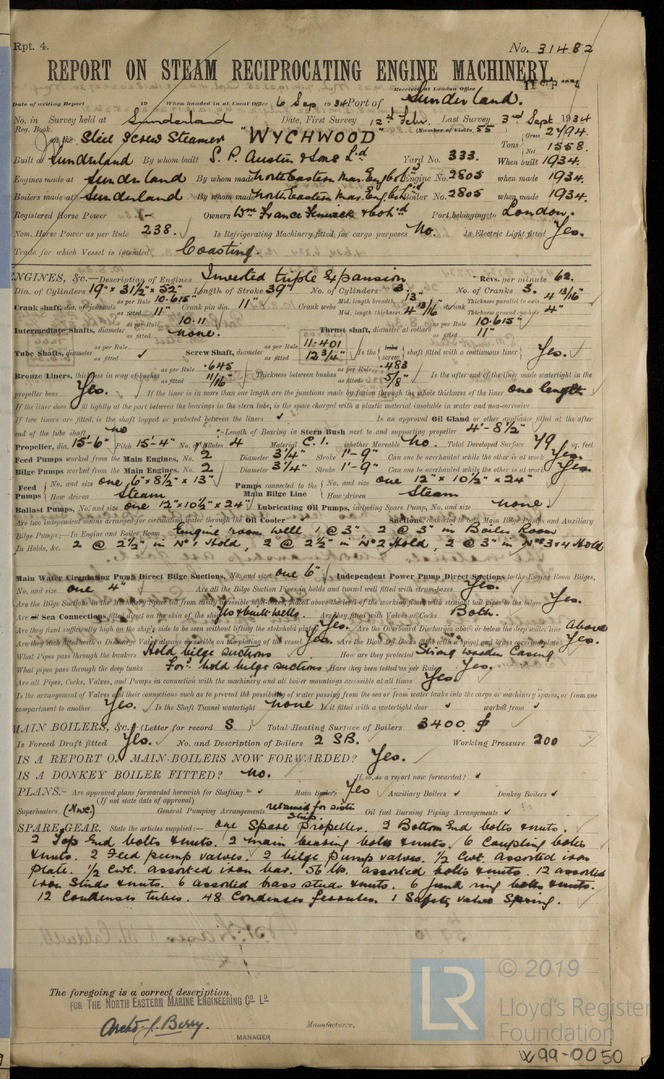 Rpt. 4.
No. 31482
REPORT ON STEAM RECIPROCATING ENGINE MACHINERY.
Received at London Office
Date of writing Report 19 When handed in at Local Office 6 Sep 1934 Port of Sunderland.
No. in Survey held at Sunderland Date, First Survey 12th Febr. Last Survey 3rd Sept 1934
Reg. Book. (Number of Visits 55)
on the Steel Screw Steamer "WYCHWOOD" Tons Gross 2794. Net 1558.
Built at Sunderland By whom built S. P. Austin & Sons Ld Yard No. 333. When built 1934.
Engines made at Sunderland By whom made North Eastern Mar. Eng. Co Ld Engine No. 2805 when made 1934.
Boilers made at Sunderland By whom made North Eastern Mar. Eng. Co Ld Boiler No. 2805 when made 1934.
Registered Horse Power Owners Wm France Fenwick & Co Ld Port belonging to London.
Nom. Horse Power as per Rule 238. Is Refrigerating Machinery fitted for cargo purposes No. Is Electric Light fitted Yes.
Trade for which Vessel is intended Coasting.
ENGINES, &c.—Description of Engines Inverted triple expansion Revs. per minute 62.
Dia. of Cylinders 19" x 31½" x 52" Length of Stroke 39" No. of Cylinders 3 No. of Cranks 3.
Crank shaft, dia. of journals as per Rule 10.615" as fitted 11" Crank pin dia. 11" Crank webs Mid. length breadth 13" Mid. length thickness 4 13/16" Thickness parallel to axis 4 13/16" Thickness around eye-hole 4"
Intermediate Shafts, diameter as per Rule 10.11 as fitted none. Thrust shaft, diameter at collars as per Rule 10.615" as fitted 11"
Tube Shafts, diameter as per Rule as fitted ✓ Screw Shaft, diameter as per Rule 11.401 as fitted 12¾" Is the screw shaft fitted with a continuous liner Yes.
Bronze Liners, thickness in way of bushes as per Rule .645 as fitted 11/16" Thickness between bushes as per Rule .483 as fitted 5/8" Is the after end of the liner made watertight in the
propeller boss Yes. If the liner is in more than one length are the junctions made by fusion through the whole thickness of the liner one length
If the liner does not fit tightly at the part between the bearings in the stern tube, is the space charged with a plastic material insoluble in water and non-corrosive
If two liners are fitted, is the shaft lapped or protected between the liners ✓ Is an approved Oil Gland or other appliance fitted at the after
end of the tube shaft no Length of Bearing in Stern Bush next to and supporting propeller 4'-8½"
Propeller, dia. 15'-6" Pitch 15'-4" No. of Blades 4 Material C.I. whether Moveable No. Total Developed Surface 79 sq. feet
Feed Pumps worked from the Main Engines, No. 2 Diameter 3¼" Stroke 1'-9" Can one be overhauled while the other is at work Yes.
Bilge Pumps worked from the Main Engines, No. 2 Diameter 3¼" Stroke 1'-9" Can one be overhauled while the other is at work Yes
Feed Pumps No. and size one 6" x 8½" x 13" How driven Steam Pumps connected to the Main Bilge Line No. and size one 12" x 10½" x 24" How driven Steam
Ballast Pumps, No. and size one 12" x 10½" x 24" Lubricating Oil Pumps, including Spare Pump, No. and size none.
Are two independent means arranged for circulating water through the Oil Cooler Suctions, connected to both Main Bilge Pumps and Auxiliary
Bilge Pumps;—In Engine and Boiler Room Engine room well 1 @ 3" 2 @ 3" in Boiler Room
In Holds, &c. 2 @ 2½" in No 1 Hold, 2 @ 2½" in No 2 Hold, 2 @ 3" in Nos 3 & 4 Hold
Main Water Circulating Pump Direct Bilge Suctions, No. and size one 6" Independent Power Pump Direct Suctions to the Engine Room Bilges,
No. and size one 4" Are all the Bilge Suction Pipes in holds and tunnel well fitted with strum-boxes Yes.
Are the Bilge Suctions in the Machinery Space Yes.
Are all Sea Connections fitted direct on the skin of the ship Are they fitted with Valves or Cocks Both.
Are they fixed sufficiently high on the ship's side to be seen without lifting the stokehold plates Yes Are the Overboard Discharges above or below the deep water line Above
Yes.
What Pipes pass through the bunkers Hold bilge suctions How are they protected Strong wooden casing
What pipes pass through the deep tanks Ford hold bilge suctions Have they been tested as per Rule Yes.
Are all Pipes, Cocks, Valves, and Pumps in connection with the machinery and all boiler mountings accessible at all times Yes
Is the arrangement of Valves and their connections such as to prevent the possibility of water passing from the sea or from water tanks into the cargo or machinery spaces, or from one
compartment to another Yes. Is the Shaft Tunnel watertight none Is it fitted with a watertight door ✓ worked from ✓
MAIN BOILERS, &c.—(Letter for record S ) Total Heating Surface of Boilers 3400
Is Forced Draft fitted Yes. No. and Description of Boilers 2 S.B. Working Pressure 200
IS A REPORT ON MAIN BOILERS NOW FORWARDED? Yes.
IS A DONKEY BOILER FITTED? No. If so, is a report now forwarded? ✓
PLANS.—Are approved plans forwarded herewith for Shafting ✓ Main Boilers Yes Auxiliary Boilers ✓ Donkey Boilers ✓
(If not state date of approval)
Superheaters General Pumping Arrangements retained for sister ship. Oil fuel Burning Piping Arrangements ✓
SPARE GEAR. State the articles supplied:— one Spare propeller. 2 Bottom End bolts & nuts.
2 Top End bolts & nuts. 2 main bearing bolts & nuts. 6 Coupling bolts
& nuts. 2 Feed pump valves. 2 bilge pump valves. ½ cwt. assorted iron
plate. ½ cwt. assorted iron bar. 56 lbs. assorted bolts & nuts. 12 assorted
iron Studs & nuts. 6 assorted brass studs & nuts. 6 junk ring bolts & nuts.
12 Condenser tubes. 48 Condenser ferrules. 1 Safety valve Spring.
The foregoing is a correct description,
FOR THE NORTH EASTERN MARINE ENGINEERING CO. LD
Archd J. Berry.
MANAGER
Manufacturer.
LR
© 2019
Lloyd's Register
Foundation
W99-0050